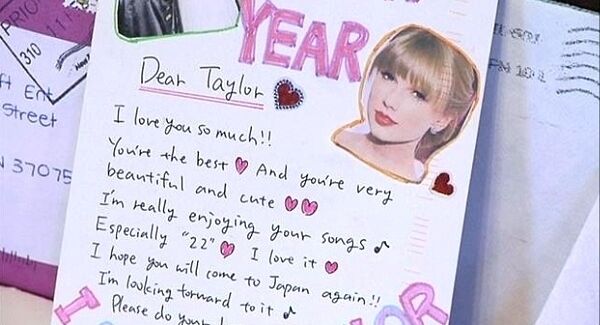 YEAR
Dear Taylor
I love you so much!!
You're the best And you're very
beautiful and cute
I'm really enjoying your songs ♪
Especially "22" I love it
I hope you will come to Japan again!!
I'm looking forward to it ♪
Please do your
PRIO
310
Ent
Street
37075